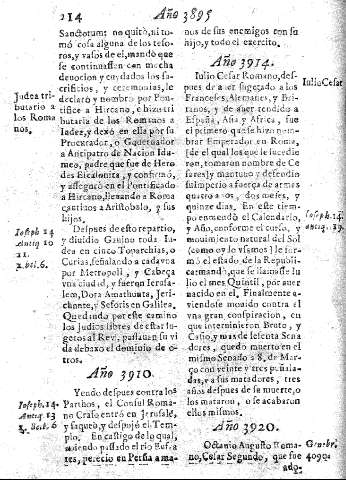 214
Año 3895
Sanctorum: no quitò, ni to-
mó cosa alguna de los teso-
ros, y vasos de el, mandò que
se continuassen con mucha
devocion y cuydados los sa-
crificios, y ceremonias, le
declarò y nombrò por Pon-
tifice a Hircano, e hizo tri-
butaria de los Romanos a
Iudea, y dexò en ella por su
Procurador, o Governador
a Antipatro de Nacion Idu-
meo, padre que fue de Hero-
des Escalonita, y confirmó,
y assegurò en el Pontificado
a Hircano, llevando a Roma
cautivos a Aristobalo, y sus
hijos.
Judea tri-
butario a
los Roma
nos.
Despues de esto repartio,
y dividio Gavino toda Iu-
dea en cinco Toparchias, o
Curias, señalando a cadavna
por Metropoli, y Cabeça
vna ciudad, y fueron Ierusa-
lem, Dora Amathunta, Jeri-
chunte, y Seforis en Galilea,
Quedando por este camino
los Judios libres de estar su-
getos al Rey, passavan su vi
da debaxo el dominio de o-
tros.
Joseph 14
Antiq 10
11.
2. bel. 6.
Año 3910.
Yendo despues contra los
Parthos, el Consul Roma-
no Craso entrò en Jerusalé,
y saqueò, y despojò el Tem-
plo. En castigo de lo qual,
aviendo passado el rio Eufra
tes, perecio en Persia a ma-
Joseph. 14.
Antiq. 13
Bell. 6
nos de sus enemigos con su
hijo, y todo el exercito.
Año 3914.
Iulio Cesar Romano, des-
pues de aver sugetado a los
Franceses, Alemanes, y Bri-
tanos, y de aver rendido a
España, Asia y Africa, fue
el primero que se hizo nom-
brar Emperador en Roma,
[de el qual los que le sucedie
ron, tomaron nombre de Ce
sares] y mantuvo y defendio
su imperio a fuerça de armas
quatro años, dos meses, y
quinze dias. En este tiem-
po enmendò el Calendario,
y Año, conforme el curso, y
movimiento natural del Sol
(como oy lo vsamos] le fir-
mò el estado de la Republi-
ca: mandò, que se llamasse Iu
lio el mes Quintil, por aver
nacido en el, Finalmente a-
viendose movido contra el
vna gran conspiracion, en
que intervinieron Bruto, y
Casio, y mas de sesenta Sena
dores, quedò muerto en el
mismo Senado a 8, de Mar-
ço con veinte y tres puñala-
das, y a sus matadores, tres
años despues de su muerte, o
los mataron, o se acabaron
ellos mismos.
Iulio Cesar
Joseph. 14.
Antiq. 19.
Año 3920.
Octavio Augusto Roma-
no, Cesar Segundo, que fue
adop-
4090